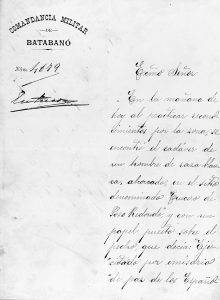 COMANDANCIA MILITAR
DE
BATABANÓ
Núm. 4.079
Excmo Señor
En la mañana de
hoy al practicar recono-
cimientos por la zona, se
encontró el cadáver de
un hombre de raza blan-
ca, ahorcado, en el sitio
denominado "Crucero de
Pozo Redondo", y con un
papel puesto sobre el
pecho que decía: "Ejer-
citado por emisario
de paz de los Españo-